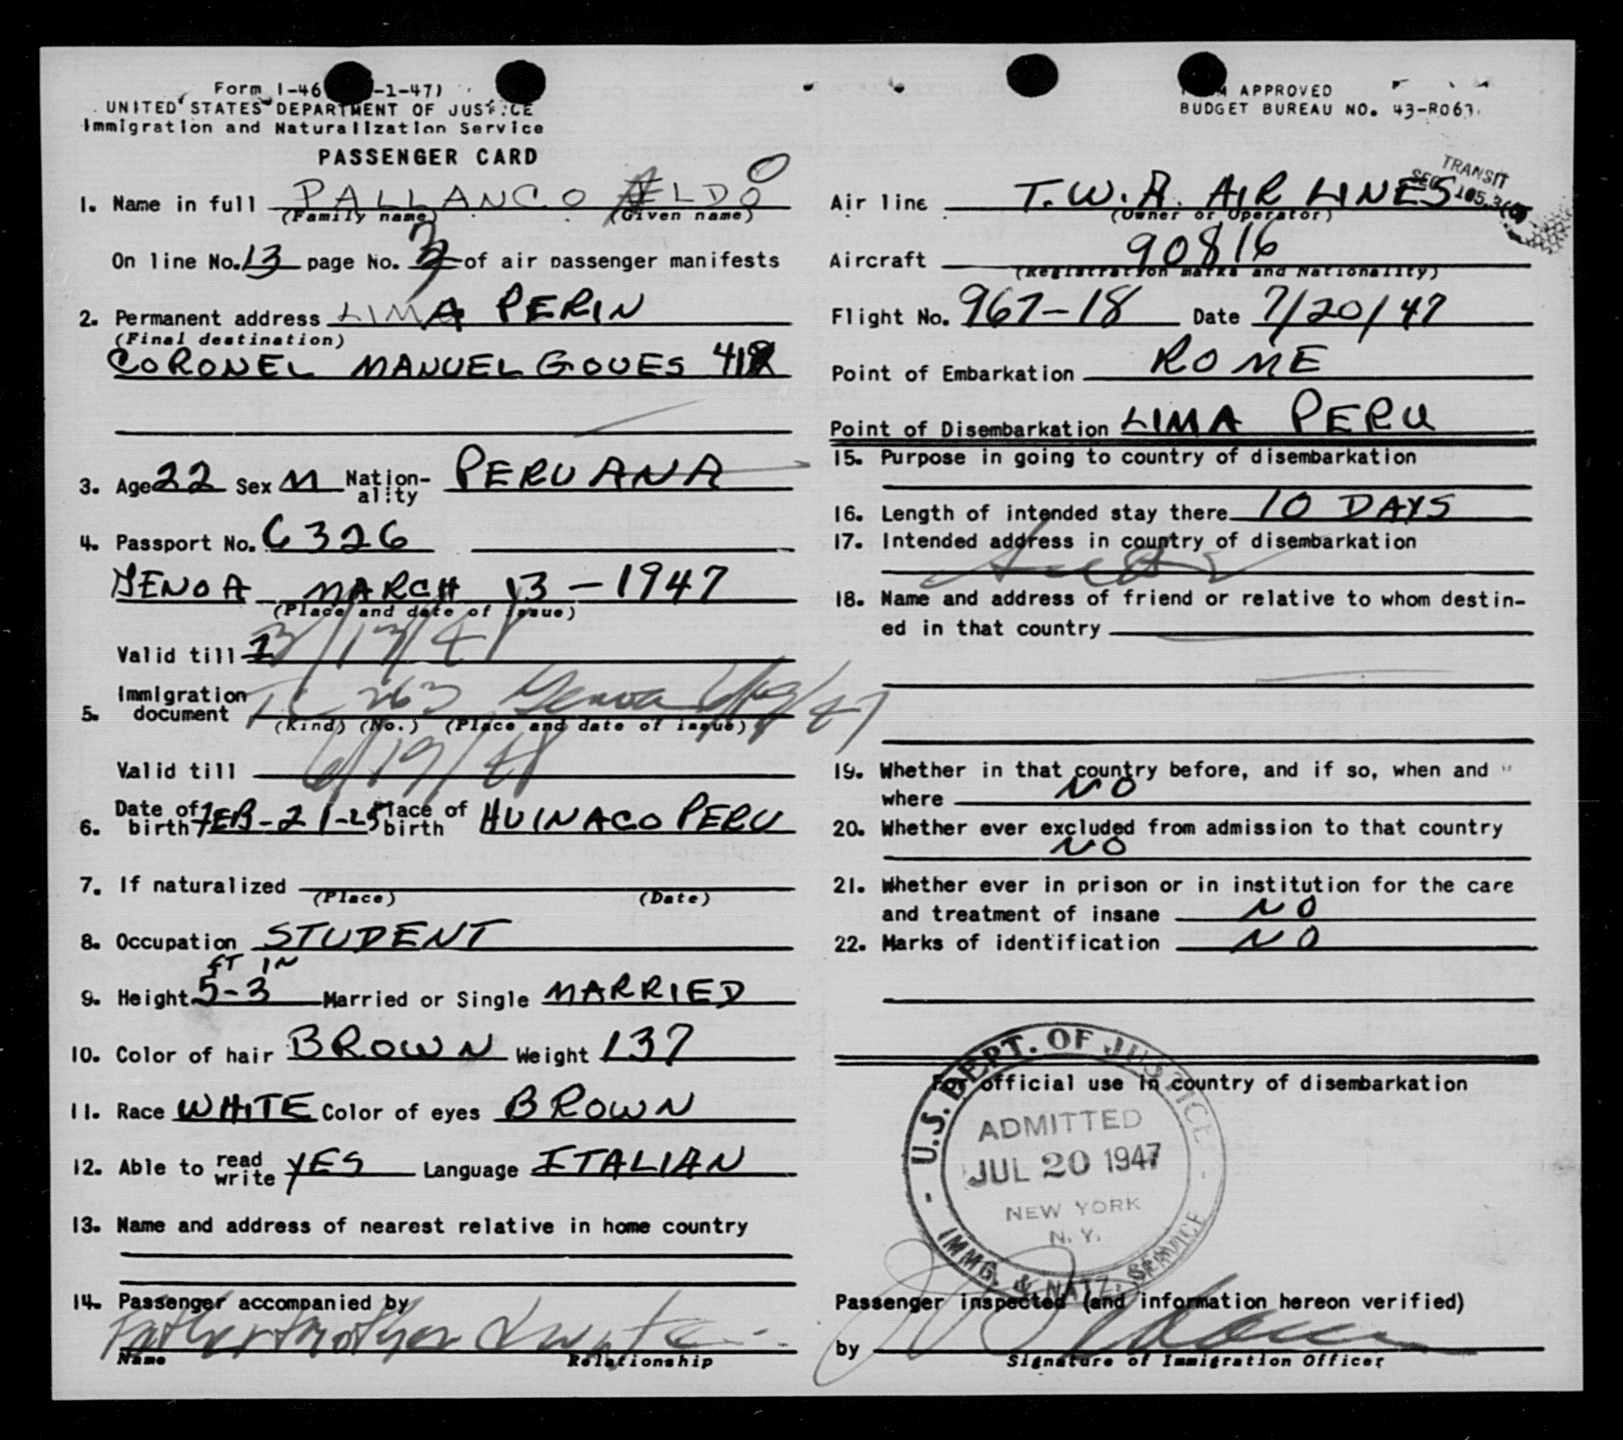 Form I-46 -1-47)
UNITED STATES DEPARTMENT OF JUSTICE
Immigration and Naturalization Service
PASSENGER CARD
1. Name in full PALLANCO ALDO
(Family name) (Given name)
On line No. 13 page No. of air passenger manifests
2. Permanent address LIMA PERIN
(Final destination)
CORONEL MANUEL GOUES 418
3. Age 22 Sex M Nation-ality PERUANA
4. Passport No. 6326
GENOA MARCH 13-1947
(Place and date of issue)
Valid till 3/13/48
5. Immigration document 263 Genoa /47
(Kind) (No.) (Place and date of issue)
Valid till 6/19/48
6. Date of birth FEB-21-25 Place of birth HUINACO PERU
7. If naturalized
(Place) (Date)
8. Occupation STUDENT
FT IN
9. Height 5-3 Married or Single MARRIED
10. Color of hair BROWN Weight 137
11. Race WHITE Color of eyes BROWN
12. Able to read write YES Language ITALIAN
13. Name and address of nearest relative in home country
14. Passenger accompanied by
Father + mother
Name Relationship
APPROVED
BUDGET BUREAU NO. 43-R063.
TRANSIT
SEC. 105.3
Air line T.W.A. AIR LINES
(Owner or Operator)
Aircraft 90816
(Registration marks and Nationality)
Flight No. 967-18 Date 7/20/47
Point of Embarkation ROME
Point of Disembarkation LIMA PERU
15. Purpose in going to country of disembarkation
16. Length of intended stay there 10 DAYS
17. Intended address in country of disembarkation
18. Name and address of friend or relative to whom destin-
ed in that country
19. Whether in that country before, and if so, when and
where NO
20. Whether ever excluded from admission to that country
NO
21. Whether ever in prison or in institution for the care
and treatment of insane NO
22. Marks of identification NO
For official use in country of disembarkation
U.S. DEPT. OF JUSTICE
ADMITTED
JUL 20 1947
NEW YORK
N.Y.
IMMG. & NATZ. SERVICE
Passenger inspected (and information hereon verified)
by
Signature of Immigration Officer